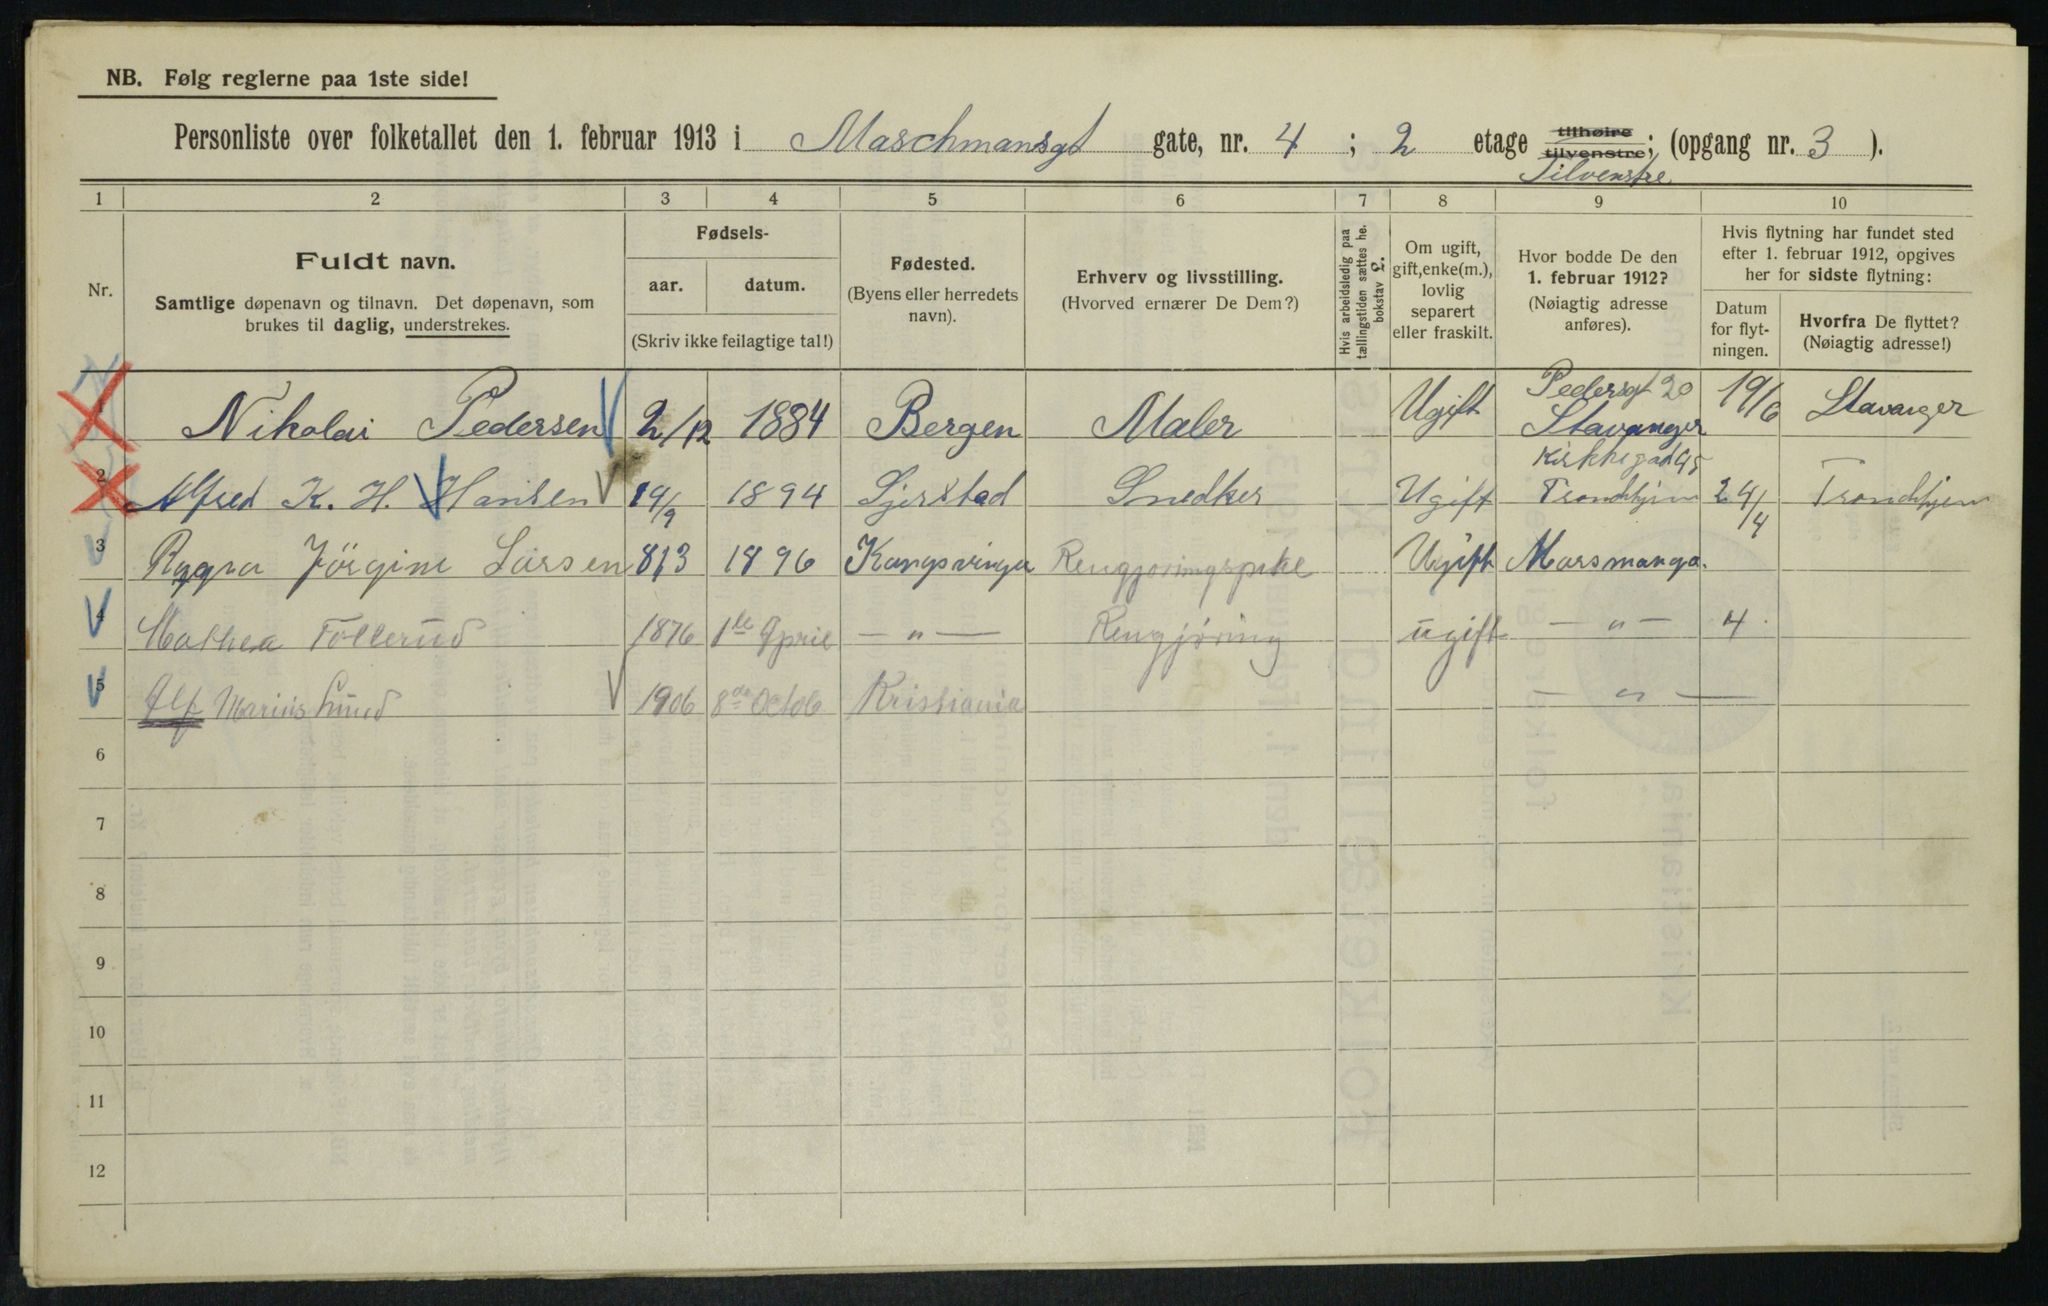 NB. Følg reglerne paa 1ste side!
Personliste over folketallet den 1. februar 1913 i Maschmansgt gate, nr. 4 ; 2 etage tilhøire tilvenstre; (opgang nr. 3 ).
Tilvenstre
1 2 3 4 5 6 7 8 9 10
Nr.
Fuldt navn.
Samtlige døpenavn og tilnavn. Det døpenavn, som
brukes til daglig, understrekes.
Fødsels-
aar. datum.
(Skriv ikke feilagtige tal!)
Fødested.
(Byens eller herredets
navn).
Erhverv og livsstilling.
(Hvorved ernærer De Dem?)
Hvis arbeidsledig paa
tællingstiden sættes he.
bokstav L.
Om ugift,
gift, enke(m.),
lovlig
separert
eller fraskilt.
Hvor bodde De den
1. februar 1912?
(Nøiagtig adresse
anføres).
Hvis flytning har fundet sted
efter 1. februar 1912, opgives
her for sidste flytning:
Datum
for flyt-
ningen.
Hvorfra De flyttet?
(Nøiagtig adresse!)
1 Nikolai Pedersen 2/12 1884 Bergen Maler Ugift Pedersgt 20 Stavanger 19/6 Stavanger
2 Alfred K. H. Hansen 19/9 1894 Gjerstad Snedker Ugift Kirkkegad 45 Trondhjem 24/4 Trondhjem
3 Ragna Jörgine Larsen 8/3 1896 Kongsvinger Rengjøringspike Ugift Marsmanga.
4 Mathea Tollerud 1876 1ste April — " — Rengjøring ugift — " — 4
5 Alf Marius Lund 1906 8de Octob Kristiania — " —
6
7
8
9
10
11
12